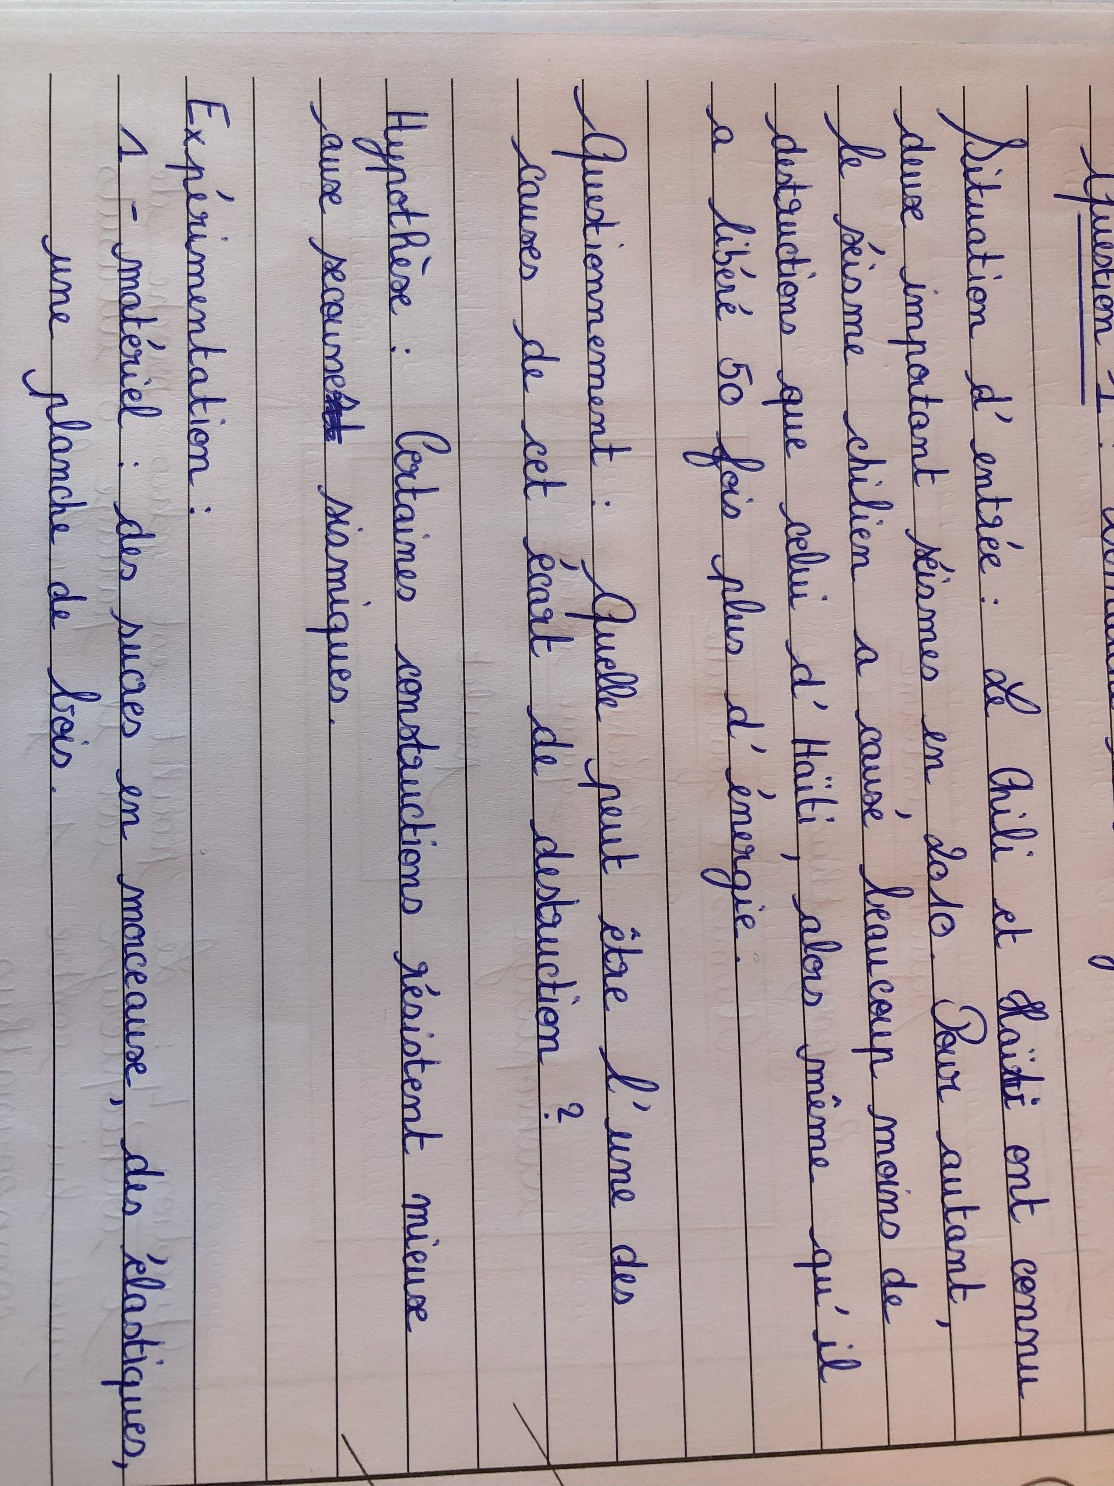 Question 1 :
Situation d'entrée : Le Chili et Haïti ont connu
deux important séismes en 2010. Pour autant,
le séisme chilien a causé beaucoup moins de
destructions que celui d'Haïti, alors même qu'il
a libéré 50 fois plus d'énergie.
Questionnement : Quelle peut être l'une des
causes de cet écart de destruction ?
Hypothèse : Certaines constructions résistent mieux
aux secousses sismiques.
Expérimentation :
1 - matériel : des sucres en morceaux, des élastiques,
une planche de bois.